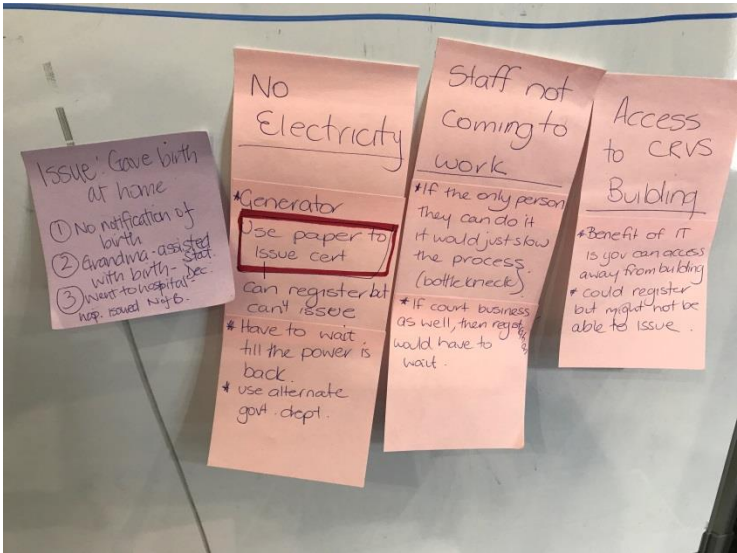 Issue: Gave birth
at home
① No notification of
birth
② Grandma-assisted
with birth - Stat.
Dec.
③ Went to hospital -
hosp. issued N of B.
No
Electricity
*Generator
Use paper to
Issue cert
can register but
can't issue
* Have to wait
till the power is
back.
* use alternate
govt. dept.
Staff not
Coming to
work
*If the only person
they can do it
it would just slow
the process.
(bottlekneck)
*If court business
as well, then
would have to
wait.
Access
to CRVS
Building
*Benefit of IT
is you can access
away from building
* could register
but might not be
able to issue.